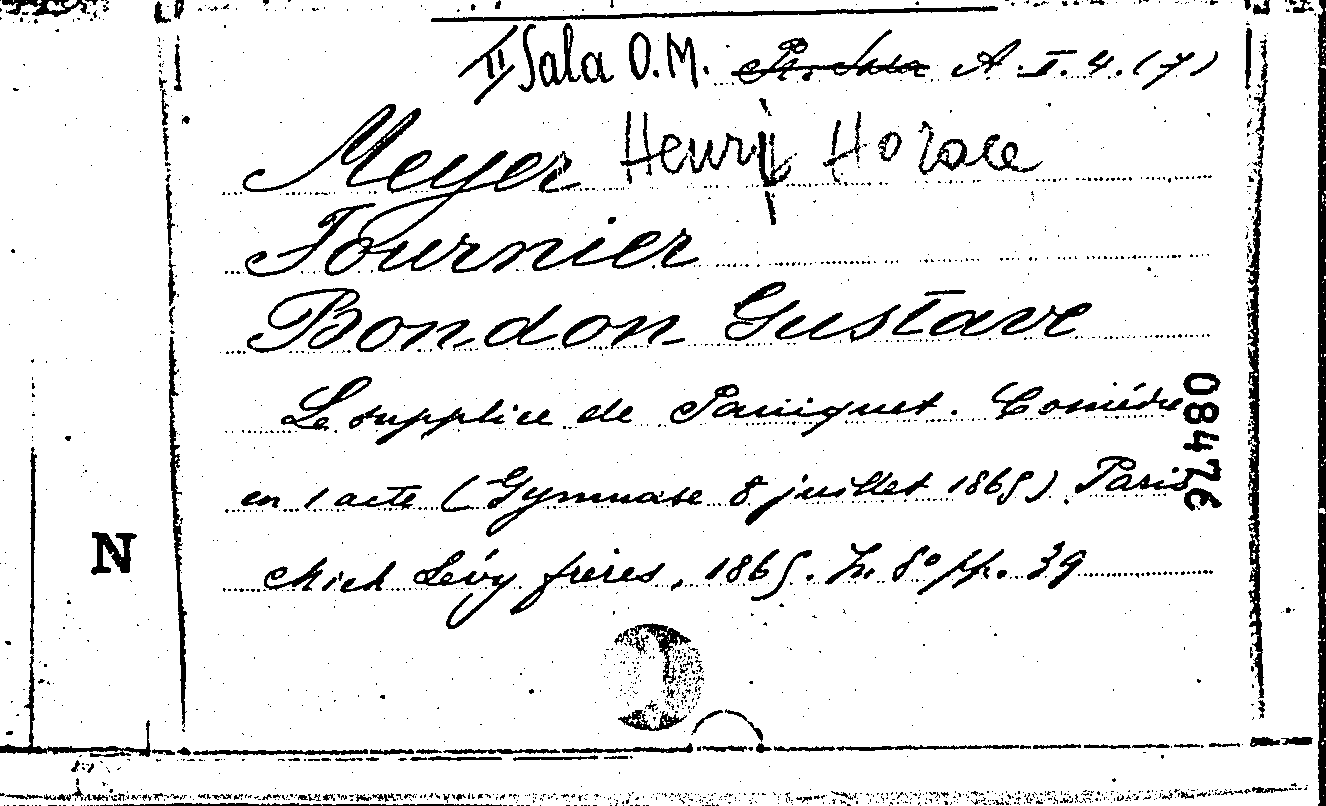 II Sala O.M. A. I. 4. (7)
Meyer Henri Horace
Fournier
Bondon Gustave
Le supplice de Paniquet. Comédie
en 1 acte (Gymnase 8 juillet 1865) Paris
Mich Lévy frères, 1865. In 8° pp. 39
08476
N